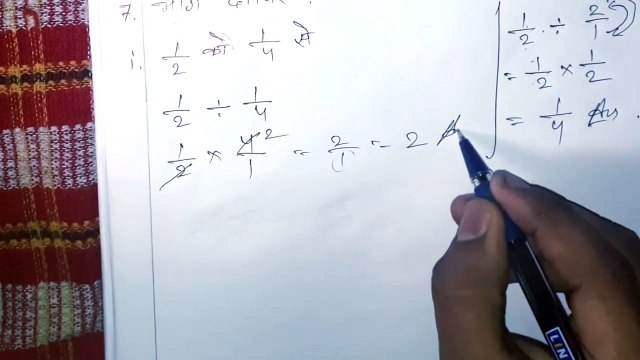 7. भाग
i. 1/2 को 1/4 से
1/2 ÷ 1/4
1/2 × 4/1 2 = 2/1 = 2
1/2 ÷ 2/1
= 1/2 × 1/2
= 1/4 Ans.
LIN